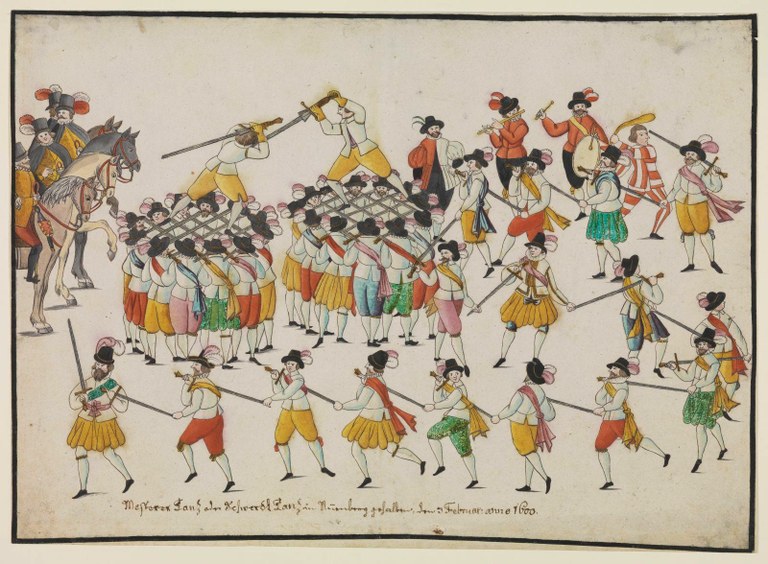 Messerer Tanz oder Schwerdt Tanz in Nürnberg gehalten, den 3 Februari anno 1600.